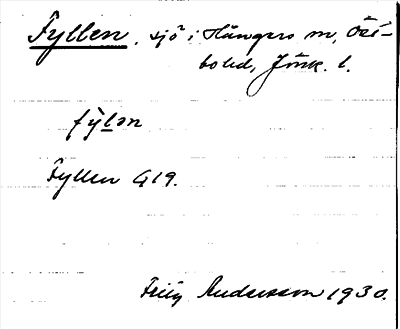 Fyllen, sjö i Hångers sn, Öst-
bo hd, Jönk. l.
fỳlən
Fyllen G19.
Frity Andersson 1930.